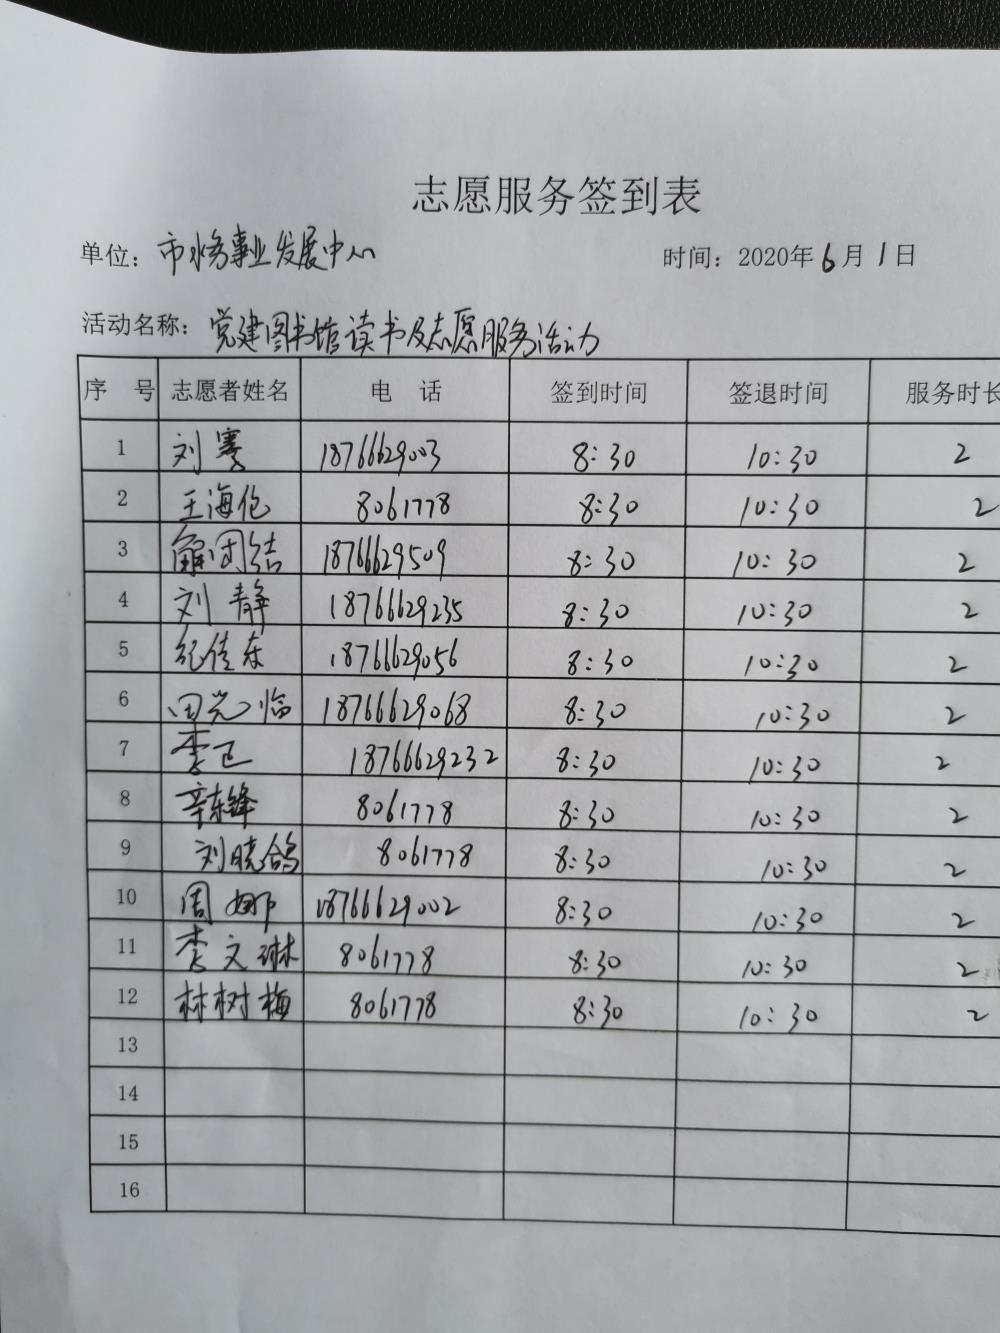 志愿服务签到表
单位：市水务事业发展中心 时间：2020年6月1日
活动名称：党建图书馆读书及志愿服务活动
序 号 志愿者姓名 电 话 签到时间 签退时间 服务时长
1 刘骞 18766629003 8:30 10:30 2
2 王海伦 8061778 8:30 10:30 2
3 解团结 18766629509 8:30 10:30 2
4 刘静 18766629235 8:30 10:30 2
5 纪佳东 18766629056 8:30 10:30 2
6 田党临 18766629068 8:30 10:30 2
7 李 18766629232 8:30 10:30 2
8 辛东锋 8061778 8:30 10:30 2
9 刘晓鸽 8061778 8:30 10:30 2
10 周娜 18766629002 8:30 10:30 2
11 李文琳 8061778 8:30 10:30 2
12 林树梅 8061778 8:30 10:30 2
13
14
15
16